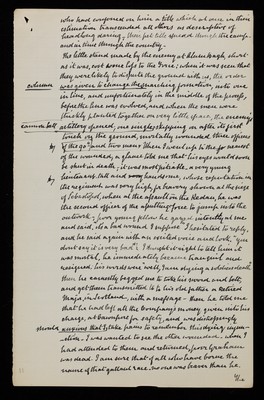 who had conferred on him a title which at once in their
estimation transcended all others as descriptive of
headlong daring, then pet title spread through the camp
and in time through the country.
The little stand made by the enemy at Alumbagh, short
as it was, cost some loss to the Force; when it was seen that
they were likely to dispute the ground with us, the order
column was given to change the marching formation, into one
in line, and unfortunately in the middle of the process,
before the line was evolved, and when the men were
thickly planted together on very little space, the enemy's
cannon ball artillery opened; one came skipping on after its first
touch on the ground, mortally wounded three officers
by and two men: When I went up to the
of the wounded, a glance told me that his eyes would soon
be shut in death; it was most pitiable, a very young
by lieutenant tall and handsome, whose reputation in
the regiment was very high for bravery shown at the siege
of Sebastopol, when at the assault on the Redan, he was
the second officer of the
outwork; poor young fellow he gazed intently at me
and said, it is a bad wound I suppose. I hesitated to reply,
and he said again with an excited voice and look, "you
don't say it is very bad". I thought it right to tell him it
was mortal, he immediately became tranquil and
resigned. his words were softly, "am dying a soldier's death"
then he earnestly begged me to take his sword and belt,
and get them transmitted to his old father a retired
Major, in Scotland, with a message - then he told me
that he had left all the Company money given into his
charge, at Cawnpore for safety, and was distressingly
anxious that I should remember his dying injunc-
tions. I was wanted to see the other wounded, when I
had attended to them and returned, poor Graham
was dead. I am sure that of all who have borne the
name of that gallant race, no one was braver than he.